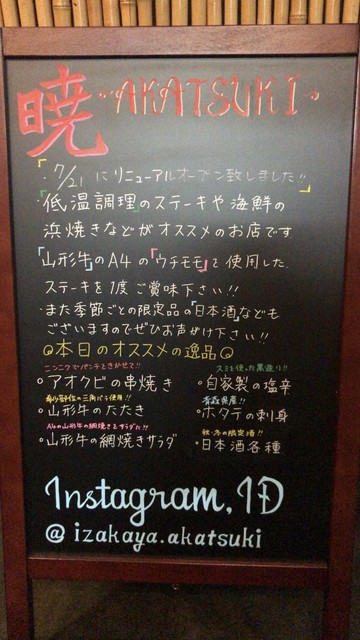 暁 -AKATSUKI-
「・7/21 にリニューアルオープン致しました!!」
「低温調理」のステーキや海鮮の
浜焼きなどがオススメのお店です
「山形牛」のA4の「ウチモモ」を使用した
ステーキを1度ご賞味下さい!!
・また季節ごとの限定品の「日本酒」なども
ございますのでぜひお声がけ下さい!!
◎本日のオススメの逸品◎
ニンニクでパンチときかせて!!
○アオクビの串焼き
希少部位の三角バラ使用!!
○山形牛のたたき
A4の山形牛の網焼きをサラダに!!
○山形牛の網焼きサラダ
スミを使った黒造り!!
○自家製の塩辛
青森県産!!
○ホタテの刺身
秋・冬の限定酒!!
○日本酒各種
Instagram, ID
@ izakaya.akatsuki